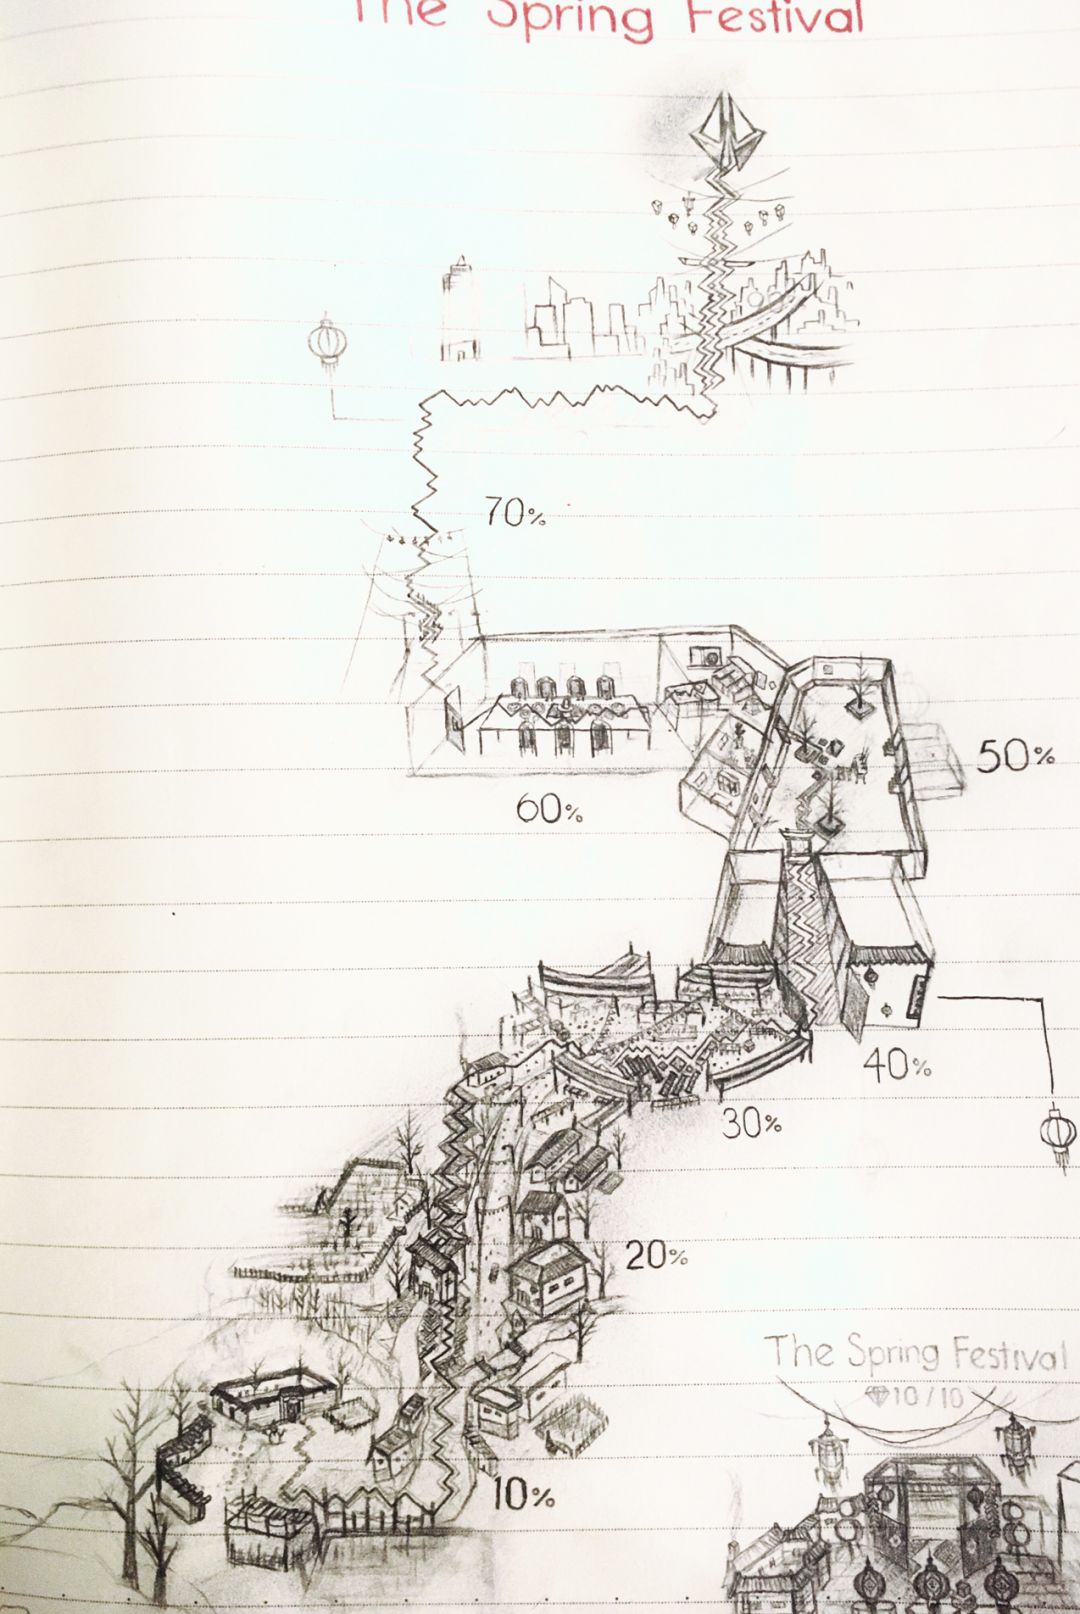 The Spring Festival
70%
50%
60%
40%
30%
20%
The Spring Festival
10/10
10%